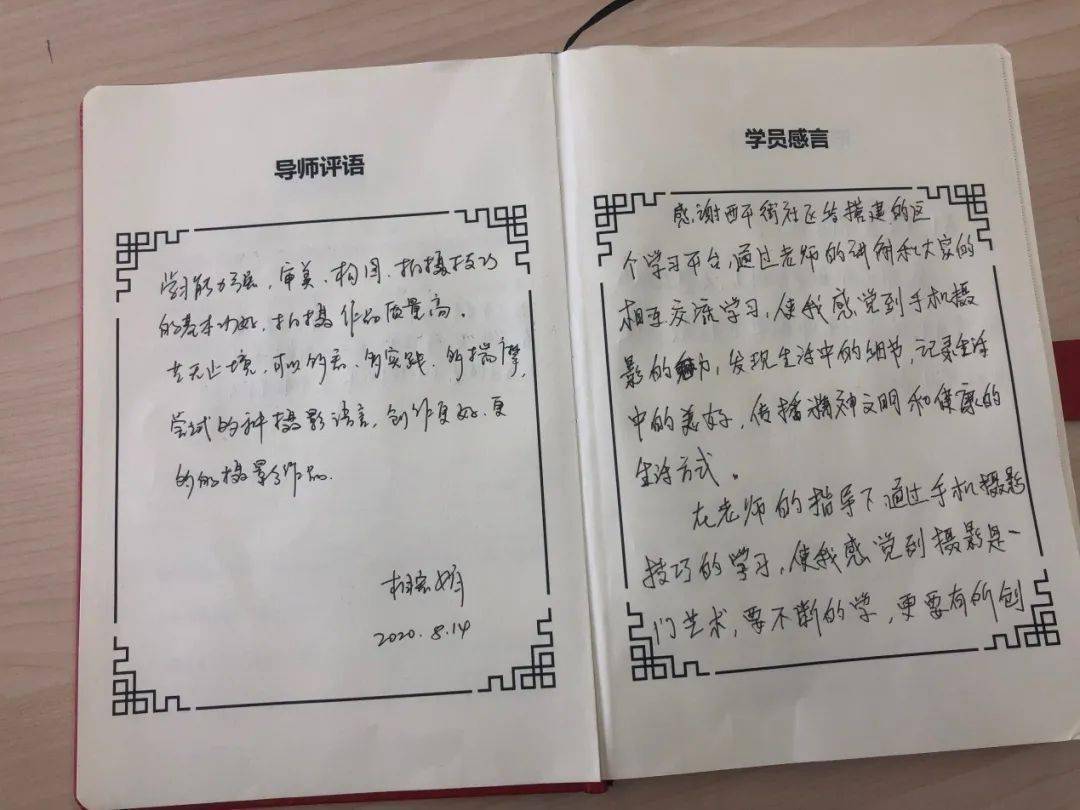 导师评语
学习能力强，审美、构图、拍摄技巧
的基本功好，拍摄作品质量高。
艺无止境，可以多看、多实践、多揣摩，
尝试多种摄影语言，创作更好、更
多的摄影作品。
2020.8.14
学员感言
感谢西平街社区给搭建的这
个学习平台，通过老师的讲解和大家的
相互交流学习，使我感觉到手机摄
影的魅力，发现生活中的细节，记录生活
中的美好，传播精神文明和健康的
生活方式。
在老师的指导下通过手机摄影
技巧的学习，使我感觉到摄影是一
门艺术，要不断的学，更要有所创